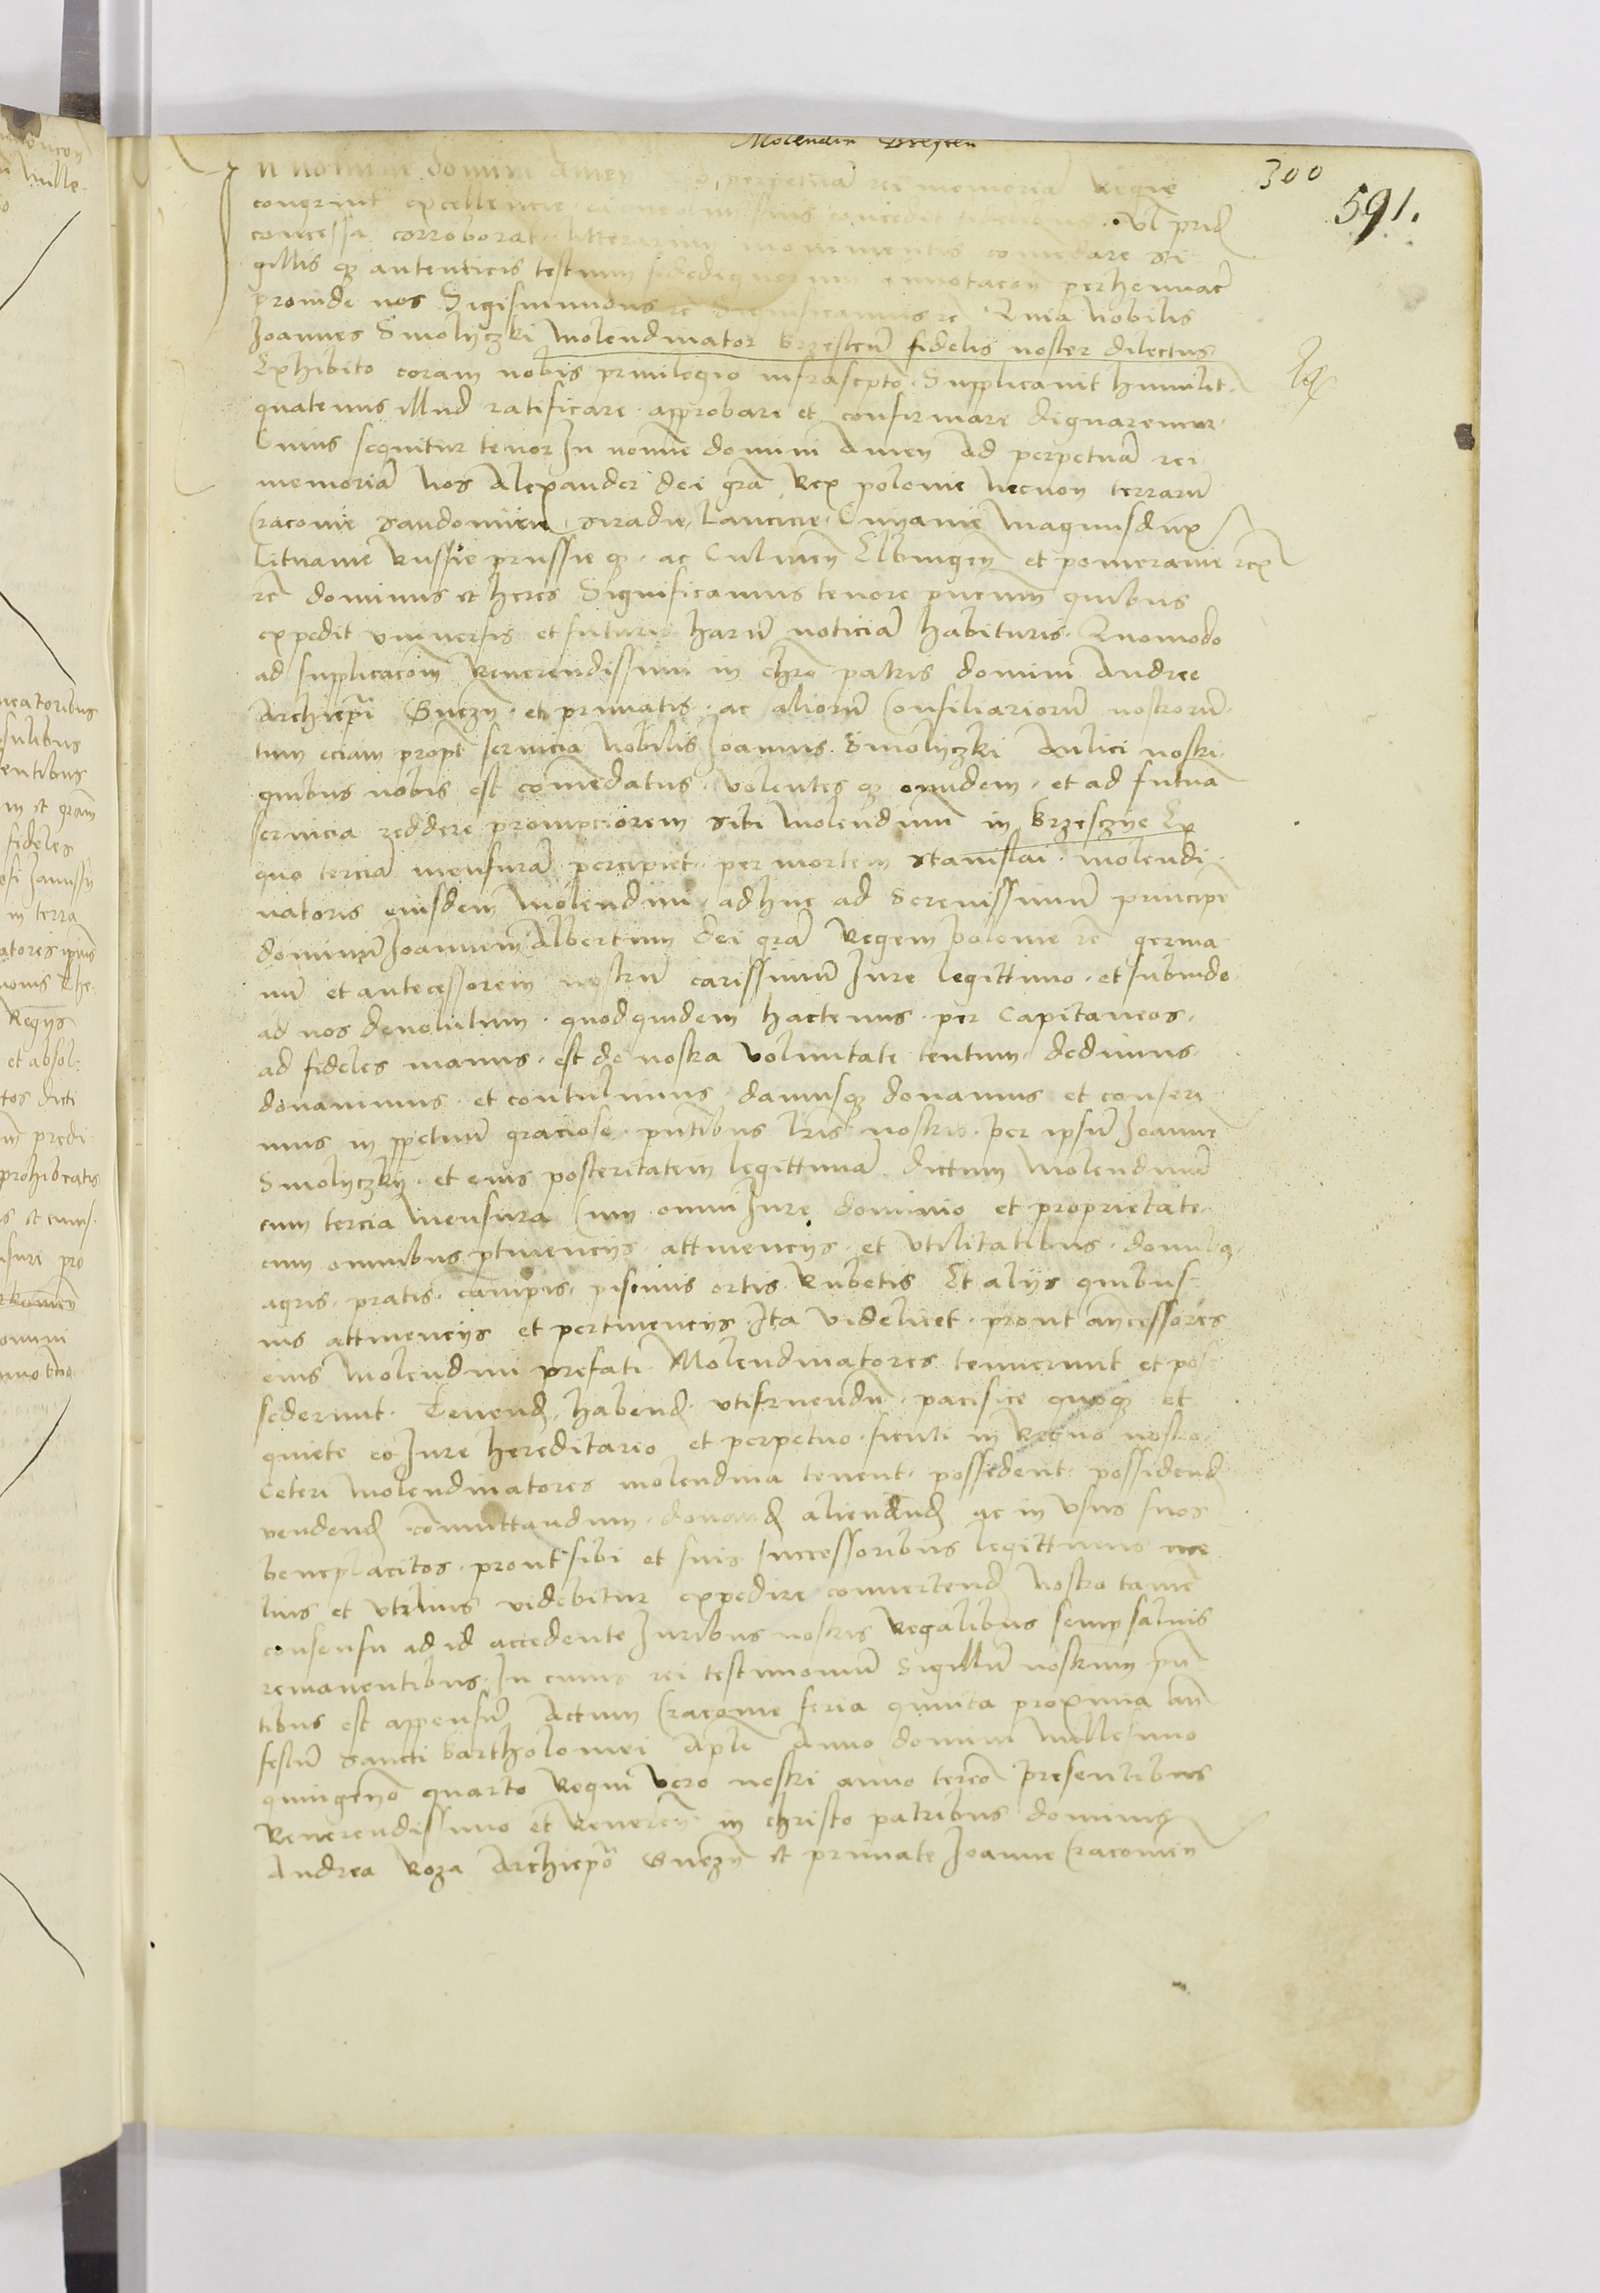 Molendin Bresten
300
591.
In nomine domini Amen Ad perpetuā rei memoriā Regie
congruit excellencie suis concedere vl prid
concessa corroborat litterarum monimentis comedare si
gillis qz autenticis testium fidedignorum annotacōn perhennar
proinde nos Sigismundus rē Significamus rē Quia Nobilis
Joannes Smolyczki Molendinator brzesteñ fidelis noster dilectus
Exhibito coram nobis priuilegio infrascpto Supplicauit humilit
quatenus illud ratificare approbare et confirmare dignaremur
Cuius sequitur tenor In nomie domini Amen Ad perpetuā rei
memoriā Nos Alexander dei grā Rex polonie Necnon terrarū
Cracouie Sandomirieñ Siradie Lancicie Cuyauie Magnusdux
Lituanie Russie prussie qz ac Culmeñ Elbingeñ et pomeranie rex
rē dominus et heres Significamus tenore pntium quibus
expedit vniuersis et futuris harū noticiā habituris Quomodo
ad supplicacom̄ Reuerendissimi in chro patris domini Andree
Archiepi Gnezn et primatis ac aliorū Consiliariorū nostrorū
tum eciam propt seruicia Nobilis Joannis Smolyczki Aulici nostri
quibus nobis est comēdatus volentes qz eundem et ad futura
seruicia reddere prompciorem sibi Molendinum in Brzesczye Ex
quo terciā mensurā percipiet per mortem Stanislai molendi
natoris eiusdem Molendini adhuc ad Serenissimū principē
dominū Joannem Albertum dei grā Regem polonie rē germa
nū et antecessorem nostrū carissimū Jure legittimo et subinde
ad nos deuolutum quodquidem hactenus per Capitaneos
ad fideles manus est de nostra voluntate tentum dedimus
donauimus et contulimus damusqz donamus et conferi
mus in ppetuū graciose pntibus lris nostris per ipsū Joannē
Smolyczky et eius posteritatem legittimā dictum Molendinū
cum tercia Mensura Cum omni Jure dominio et proprietate
cum omnibus ptinencys attinencys et vtilitatibus domibq
agris pratis campis piscinis ortis Rubetis Et alys quibus
uis attinencys et pertinencys Ita videlicet prout ancessores
eius Molendini prefati Molendinatores tenuerunt et pos
sederunt Tenend habend vtifruendū pacifice quoqz et
quiete eo Jure hereditario et perpetuo sicuti in Regno nostro
Ceteri Molendinatores molendina tenent possident possidend
vendend commuttandum donand aliendnd ac in vsus suos
beneplacitos prout sibi et suis successoribus legittimis me
lius et vtilius videbitur expedire conuertend Nostro tamē
consensu ad id accedente Juribus nostris Regalibus semp saluis
remanentibus In cuius rei testimoniū Sigillū nostrum pn
tibus est appensū Actum Cracouie feria quinta proxima an̄
festū Sancti Bartholomei Apli Anno domini Millesimo
quingeno quarto Regni vero nostri anno tercō presentibus
Reuerendissimo et Reueren in christo patribus dominis
Andrea Roza Archiepo Gnezn et primate Joanne Cracouien